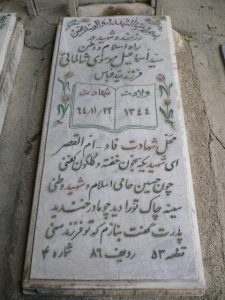 رزمنده شهید در
راه اسلام و وطن
سید اسماعیل موسوی شالمائی
فرزند سید عباس
ولادت شهادت
۱۳۴۴ ۶۴/۱۱/۲۲
محل شهادت فاو ام القصر
ای شهیدیکه بخون خفته و گلگون کفنی
چون حسین حامی اسلام و شهید وطنی
سینه چاک تو را دید چو مادر خندید
پدرت گفت بنازم که تو فرزند منی
قطعه ۵۳ ردیف ۸۶ شماره ۴